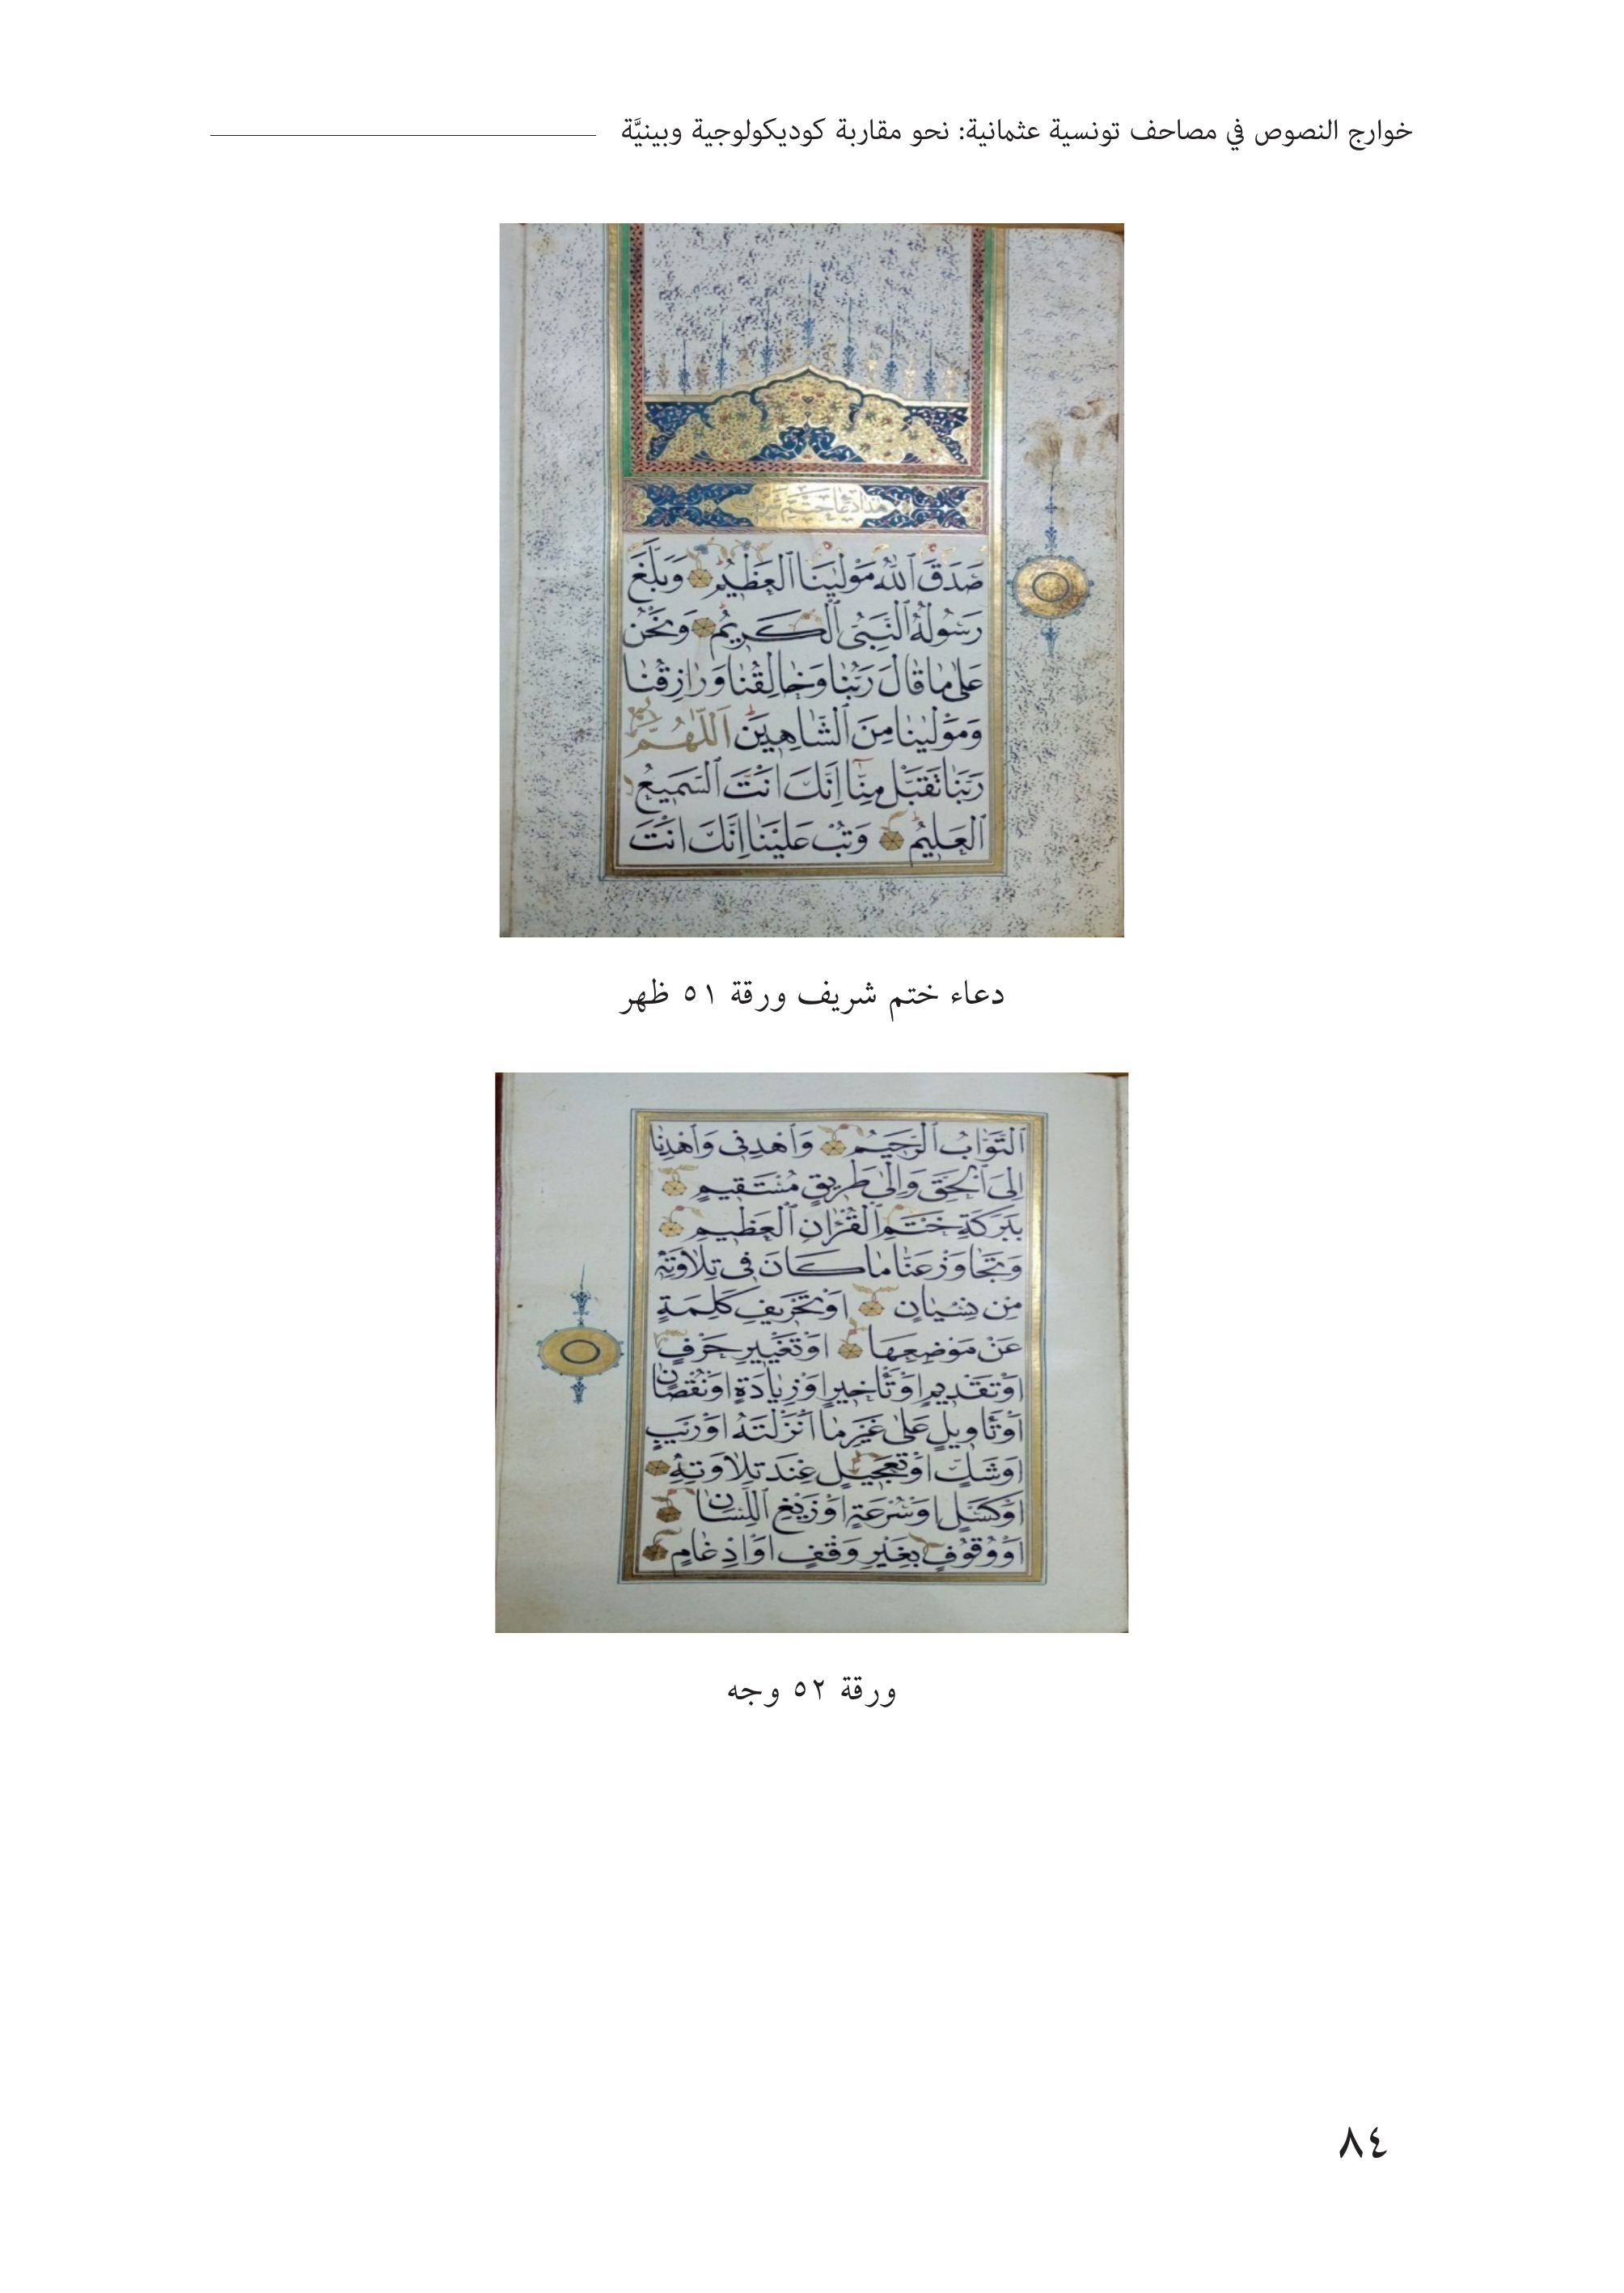 خوارج النصوص في مصاحف تونسية عثمانية: نحو مقاربة كوديكولوجية وبينيَّة
هذا دعا ختم شريف
صَدَقَ اللهُ مَوْلٰينَا الْعَظِيمُ وَبَلَّغَ
رَسُولُهُ النَّبِىُّ الْكَرِيمُ وَنَحْنُ
عَلٰى مَا قَالَ رَبُّنَا وَخَالِقُنَا وَرَازِقُنَا
وَمَوْلٰينَا مِنَ الشَّاهِدِينَ اَللّٰهُمَّ
رَبَّنَا تَقَبَّلْ مِنَّا اِنَّكَ اَنْتَ السَّمِيعُ
الْعَلِيمُ وَتُبْ عَلَيْنَا اِنَّكَ اَنْتَ
دعاء ختم شريف ورقة ٥١ ظهر
التَّوَّابُ الرَّحِيمُ وَاهْدِنِى وَاهْدِنَا
اِلَى الْحَقِّ وَاِلٰى طَرِيقٍ مُسْتَقِيمٍ
بِبَرَكَةِ خَتْمِ الْقُرْاٰنِ الْعَظِيمِ
وَتَجَاوَزْ عَنَّا مَا كَانَ فِى تِلَاوَتِهِ
مِنْ نِسْيَانٍ اَوْ تَحْرِيفِ كَلِمَةٍ
عَنْ مَوْضِعِهَا اَوْ تَغْيِيرِ حَرْفٍ
اَوْ تَقْدِيمٍ اَوْ تَأْخِيرٍ اَوْ زِيَادَةٍ اَوْ نُقْصَانٍ
اَوْ تَأْوِيلٍ عَلٰى غَيْرِ مَا اَنْزَلْتَهُ اَوْ رَيْبٍ
اَوْ شَكٍّ اَوْ تَعْجِيلٍ عِنْدَ تِلَاوَتِهِ
اَوْ كَسَلٍ اَوْ سُرْعَةٍ اَوْ زَيْغِ اللِّسَانِ
اَوْ وُقُوفٍ بِغَيْرِ وَقْفٍ اَوْ اِدْغَامٍ
ورقة ٥٢ وجه
٨٤